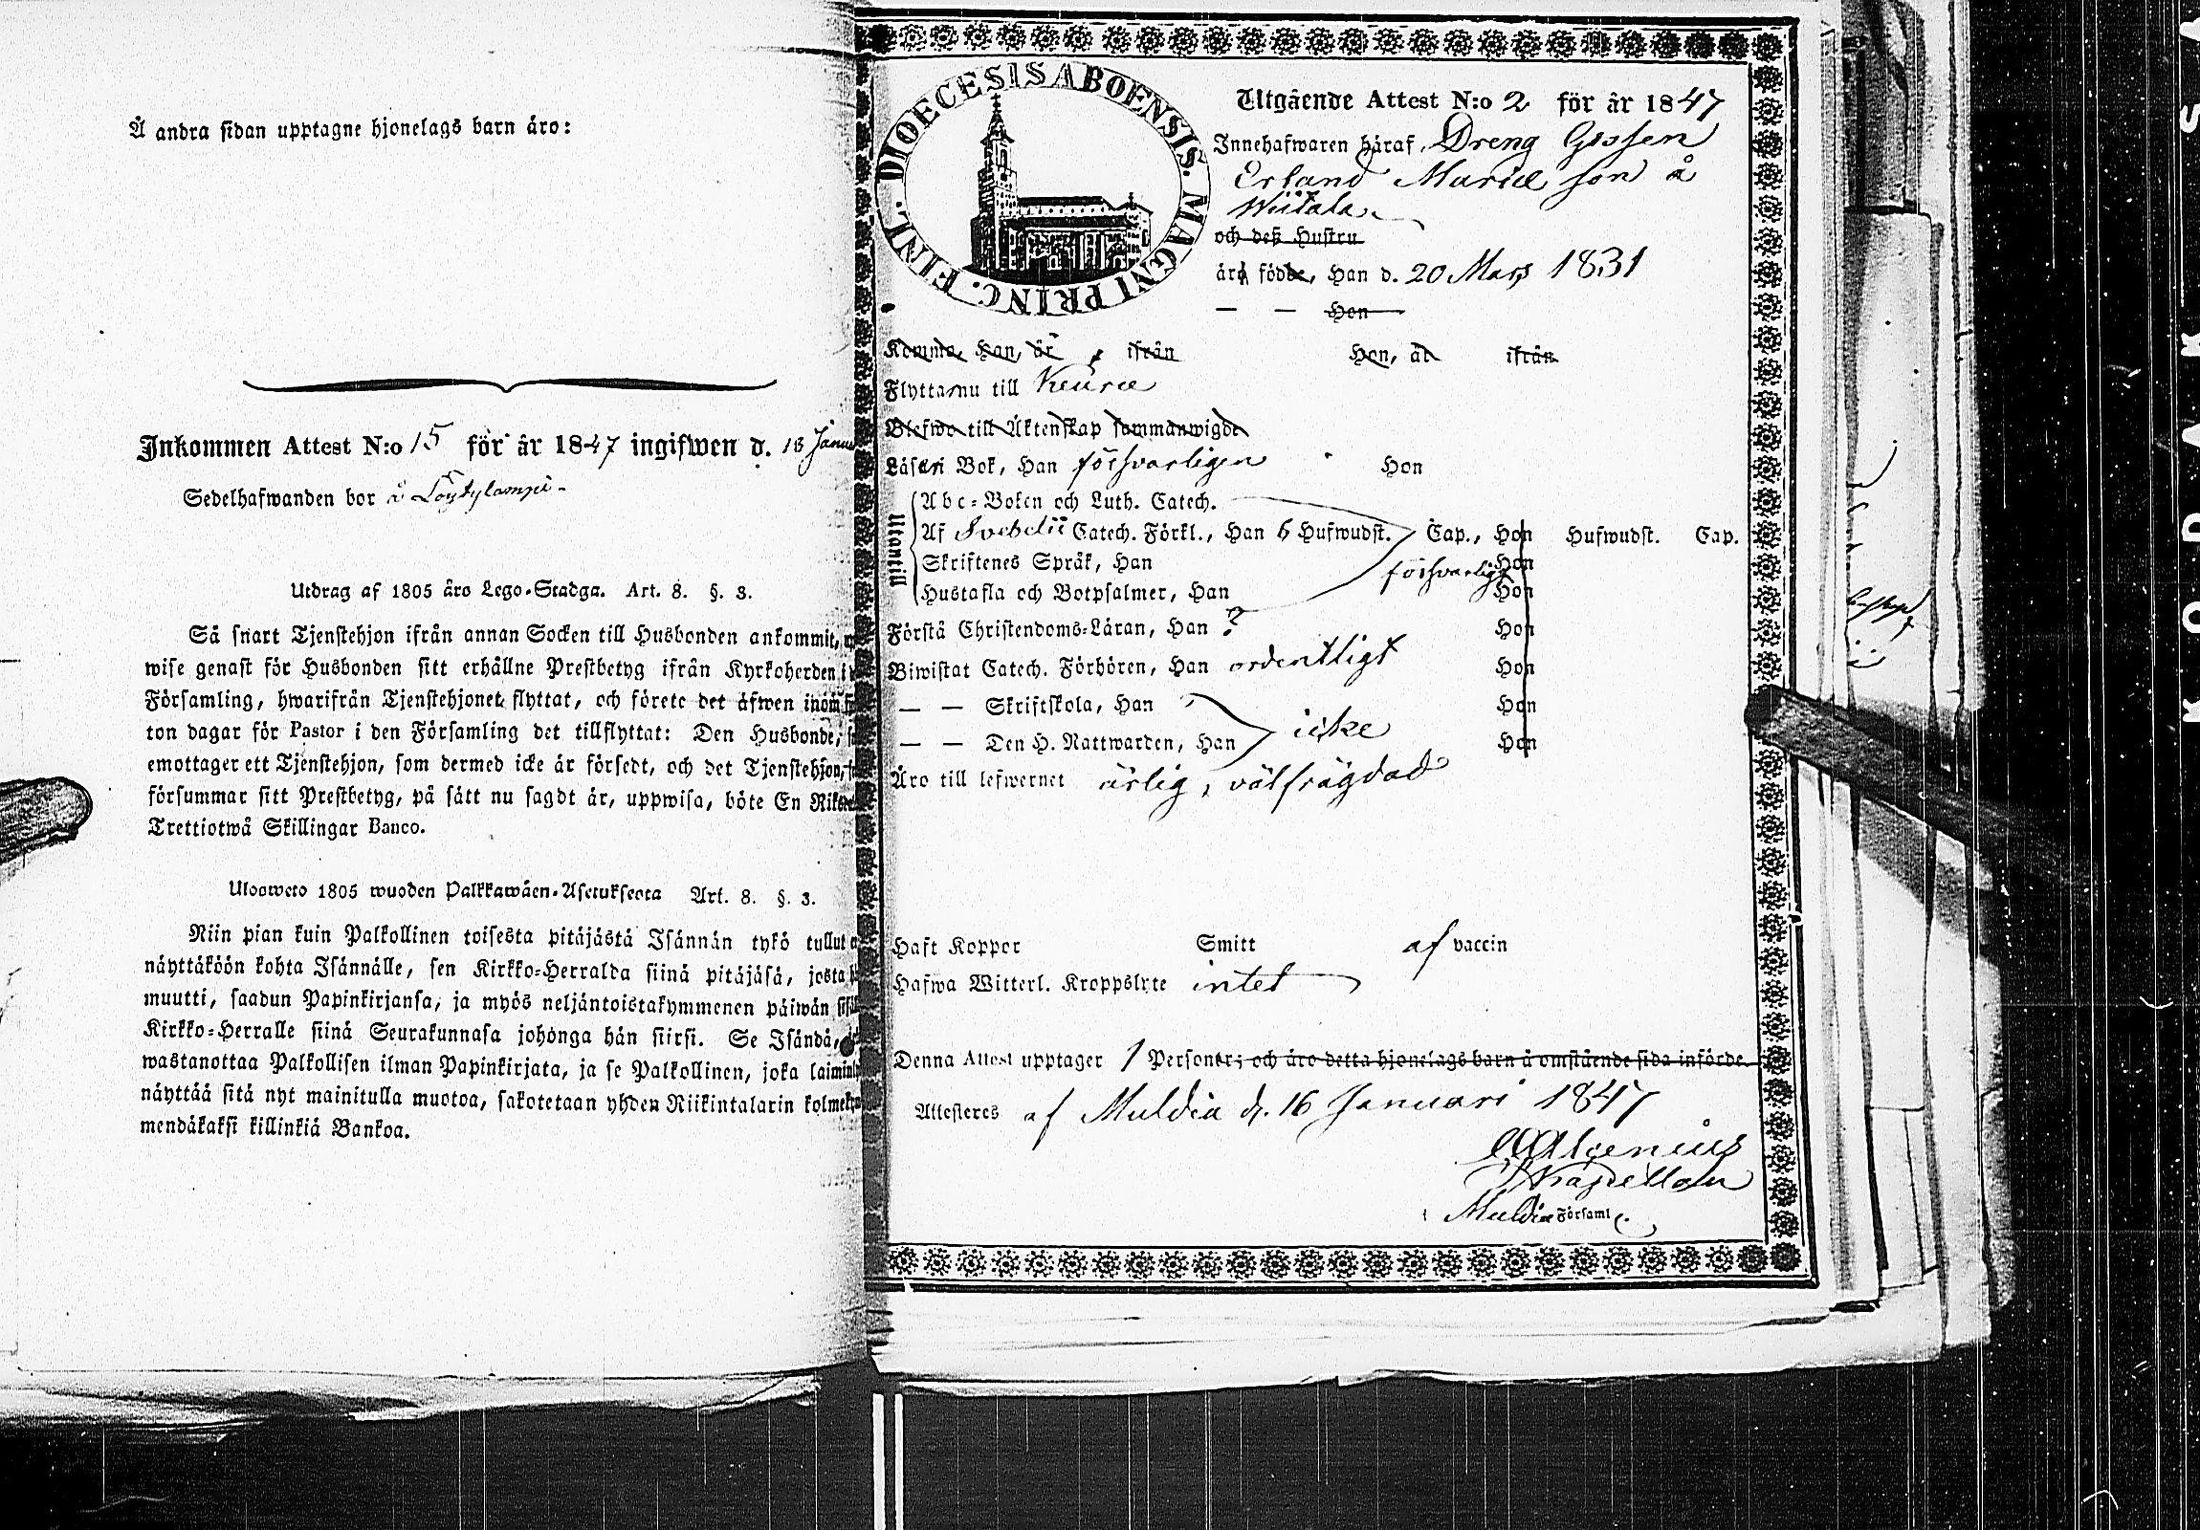 Å andra sidan upptagne hjonelags barn äro:
Inkommen Attest N:o 15 för år 1847 ingifwen d. 18 Janua
Sedelhafwanden bor å Löytylampi
Utdrag af 1805 åro Lego-Stadga. Art. 8. §. 3.
Så snart Tjenstehjon ifrån annan Socken till Husbonden ankommit,
wise genast för Husbonden sitt erhållne Prestbetyg ifrån Kyrkoherden i
Församling, hwarifrån Tjenstehjonet flyttat, och förete det äfwen inom
ton dagar för Pastor i den Församling det tillflyttat: Den Husbonde,
emottager ett Tjenstehjon, som dermed icke är försedt, och det Tjenstehjon,
försummar sitt Prestbetyg, på sätt nu sagdt är, uppwisa, böte En Riks
Trettiotwå Skillingar Banco.
Uloowcto 1805 wuoden Palkkawäen-Asetukseota Art. 8. §. 3.
Niin pian kuin Palkollinen toisesta pitäjästä Isännän tykö tullut
näyttäköön kohta Isännälle, sen Kirkko-Herralda siinä pitäjäsä, josta
muutti, saadun Papinkirjansa, ja myös neljäntoistakymmenen päiwän sisä
Kirkko-Herralle siinä Seurakunnasa johonga hän siirsi. Se Isändä,
wastanottaa Palkollisen ilman Papinkirjata, ja se Palkollinen, joka laimin
näyttää sitä nyt mainitulla muotoa, sakotetaan yhden Riikintalarin kolmeky
mendäkaksi killinkiä Bankoa.
DIOECESIS ABOENSIS. MAGNI PRINC. FINL.
Utgående Attest N:o 2 för år 1847
Innehafwaren häraf, Dreng Gossen
Erland Mariæ son å
Wiitala
och deß Hustru
äro födde, Han d. 20 Mars 1831
— — Hon
Komne, Han, år ifrån Hon, år ifrån
Flytta nu till Keuru
Blefwo till Äktenskap sammanwigde
Läsa i Bok, Han försvarligen Hon
Utantill
Abc-Boken och Luth. Catech.
Af Svebelii Catech. Förkl., Han 6 Hufwudst. Cap., Hon Hufwudst. Cap.
Skriftenes Språk, Han försvarligt Hon
Hustafla och Botpsalmer, Han Hon
Förstå Christendoms-Läran, Han ? Hon
Biwistat Catech. Förhören, Han ordentligt Hon
— — Skriftskola, Han Hon
— — Den H. Nattwarden, Han icke Hon
Äro till lefwernet ärlig, välfrägdad
Haft Koppor Smitt af vaccin
Hafwa Witterl. Kroppslyte intet
Denna Attest upptager 1 Personer; och äro detta hjonelags barn å omstående sida införde.
Attesteres af Muldia d. 16 Januari 1847
Kapellan
i Muldia Församl.